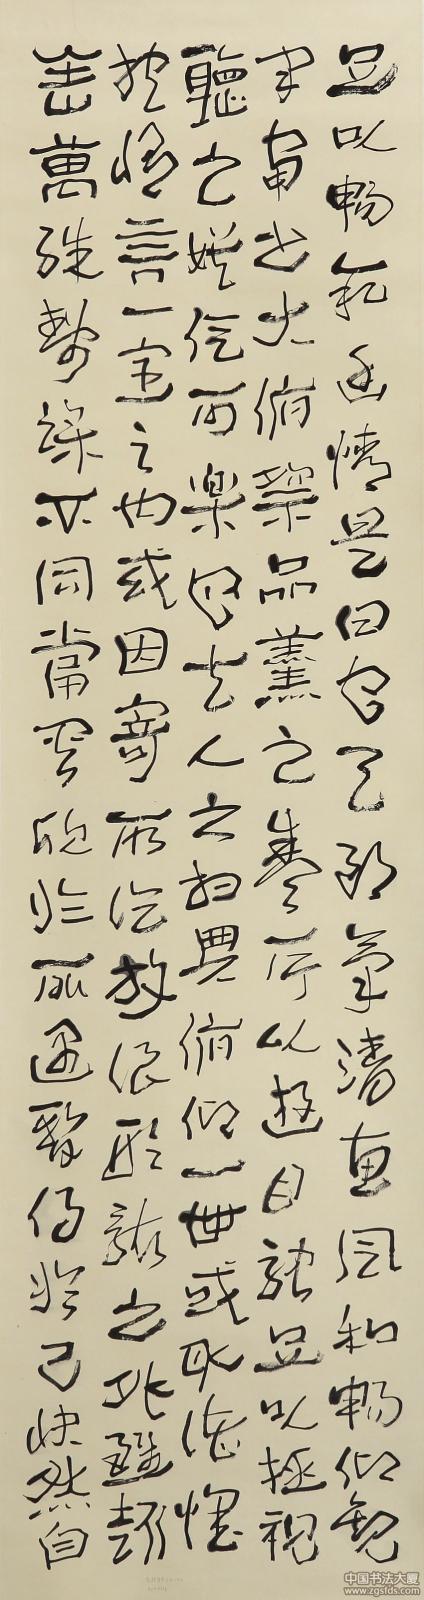 足以暢叙幽情是日也天朗氣清惠風和暢仰觀
宇宙之大俯察品類之盛所以遊目騁足以極視
聽之娛信可樂也夫人之相與俯仰一世或取諸懷
抱悟言一室之內或因寄所託放浪形骸之外雖趣
舍萬殊靜躁不同當其欣於所遇暫得於己快然自
中国书法大厦
www.zgsfds.com